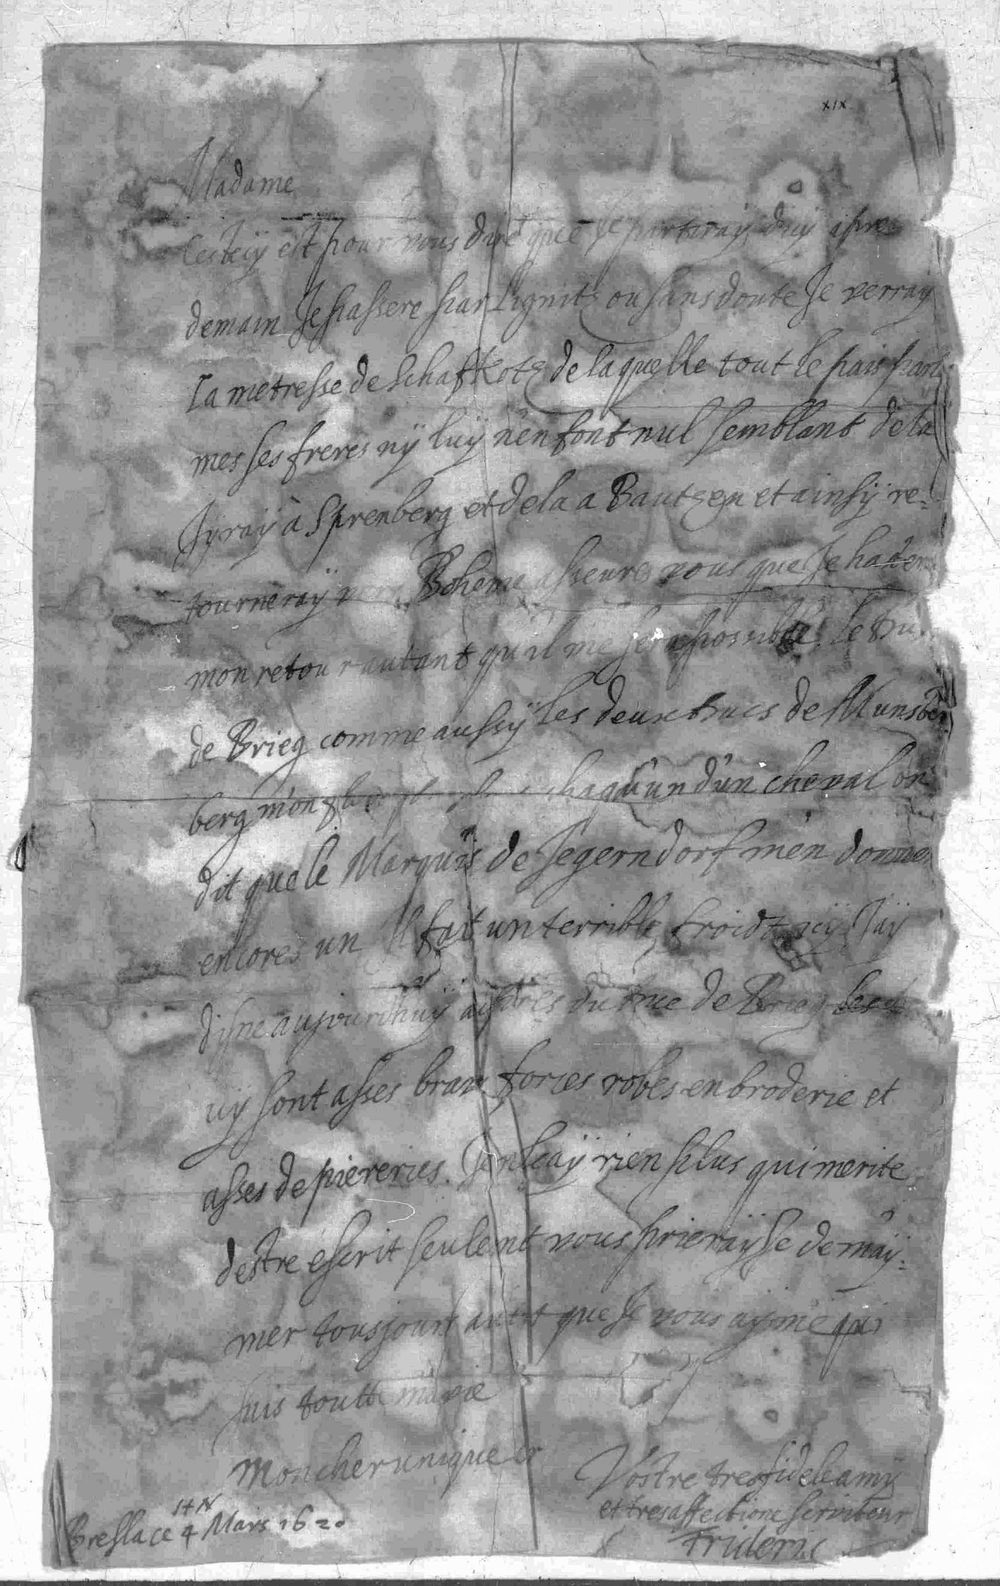 XIX
Madame
Cestcÿ est pour vous dire que Je partiray dicy apres
demain Je passere par Lignits ou sans doute Je verray
la metresse de Schafkotz de laquelle tout le pais parl
mes ses freres nÿ luÿ n'en font nul semblant de la
Jyraÿ à Sprenberg et de la a Bautzen et ainsÿ re-
tourneraÿ vers Boheme asseures vous que Je haterai
mon retour autant qu'il me sera possible. le Duc
de Brieg comme aussÿ les deux Ducs de Munster
berg m'ont chaqu'un d'un cheval on
dit que le Marquis de Jegerndorf m'en donne
encores un Il fait un terrible froidt icÿ J'aÿ
disne aujourdhuÿ aupres du Duc de Brieg
icÿ sont asses brav forces robes en broderie et
asses de piereries. Je n'scaÿ rien plus qui merite
destre escrit seulemt vous prieraÿ Je de m'aÿ-
mer tousjours autt que Je vous ayme qui
suis toutte ma vie
Mon cher unique cr
Vostre tresfidele amÿ
et tresaffectione serviteur
Frideris
Breslau ce 4 Mars 1620
st N